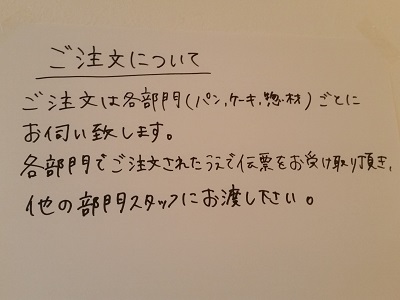 ご注文について
ご注文は各部門(パン,ケーキ,惣・材)ごとに
お伺い致します。
各部門でご注文されたうえで伝票をお受け取り頂き,
他の部門スタッフにお渡し下さい。